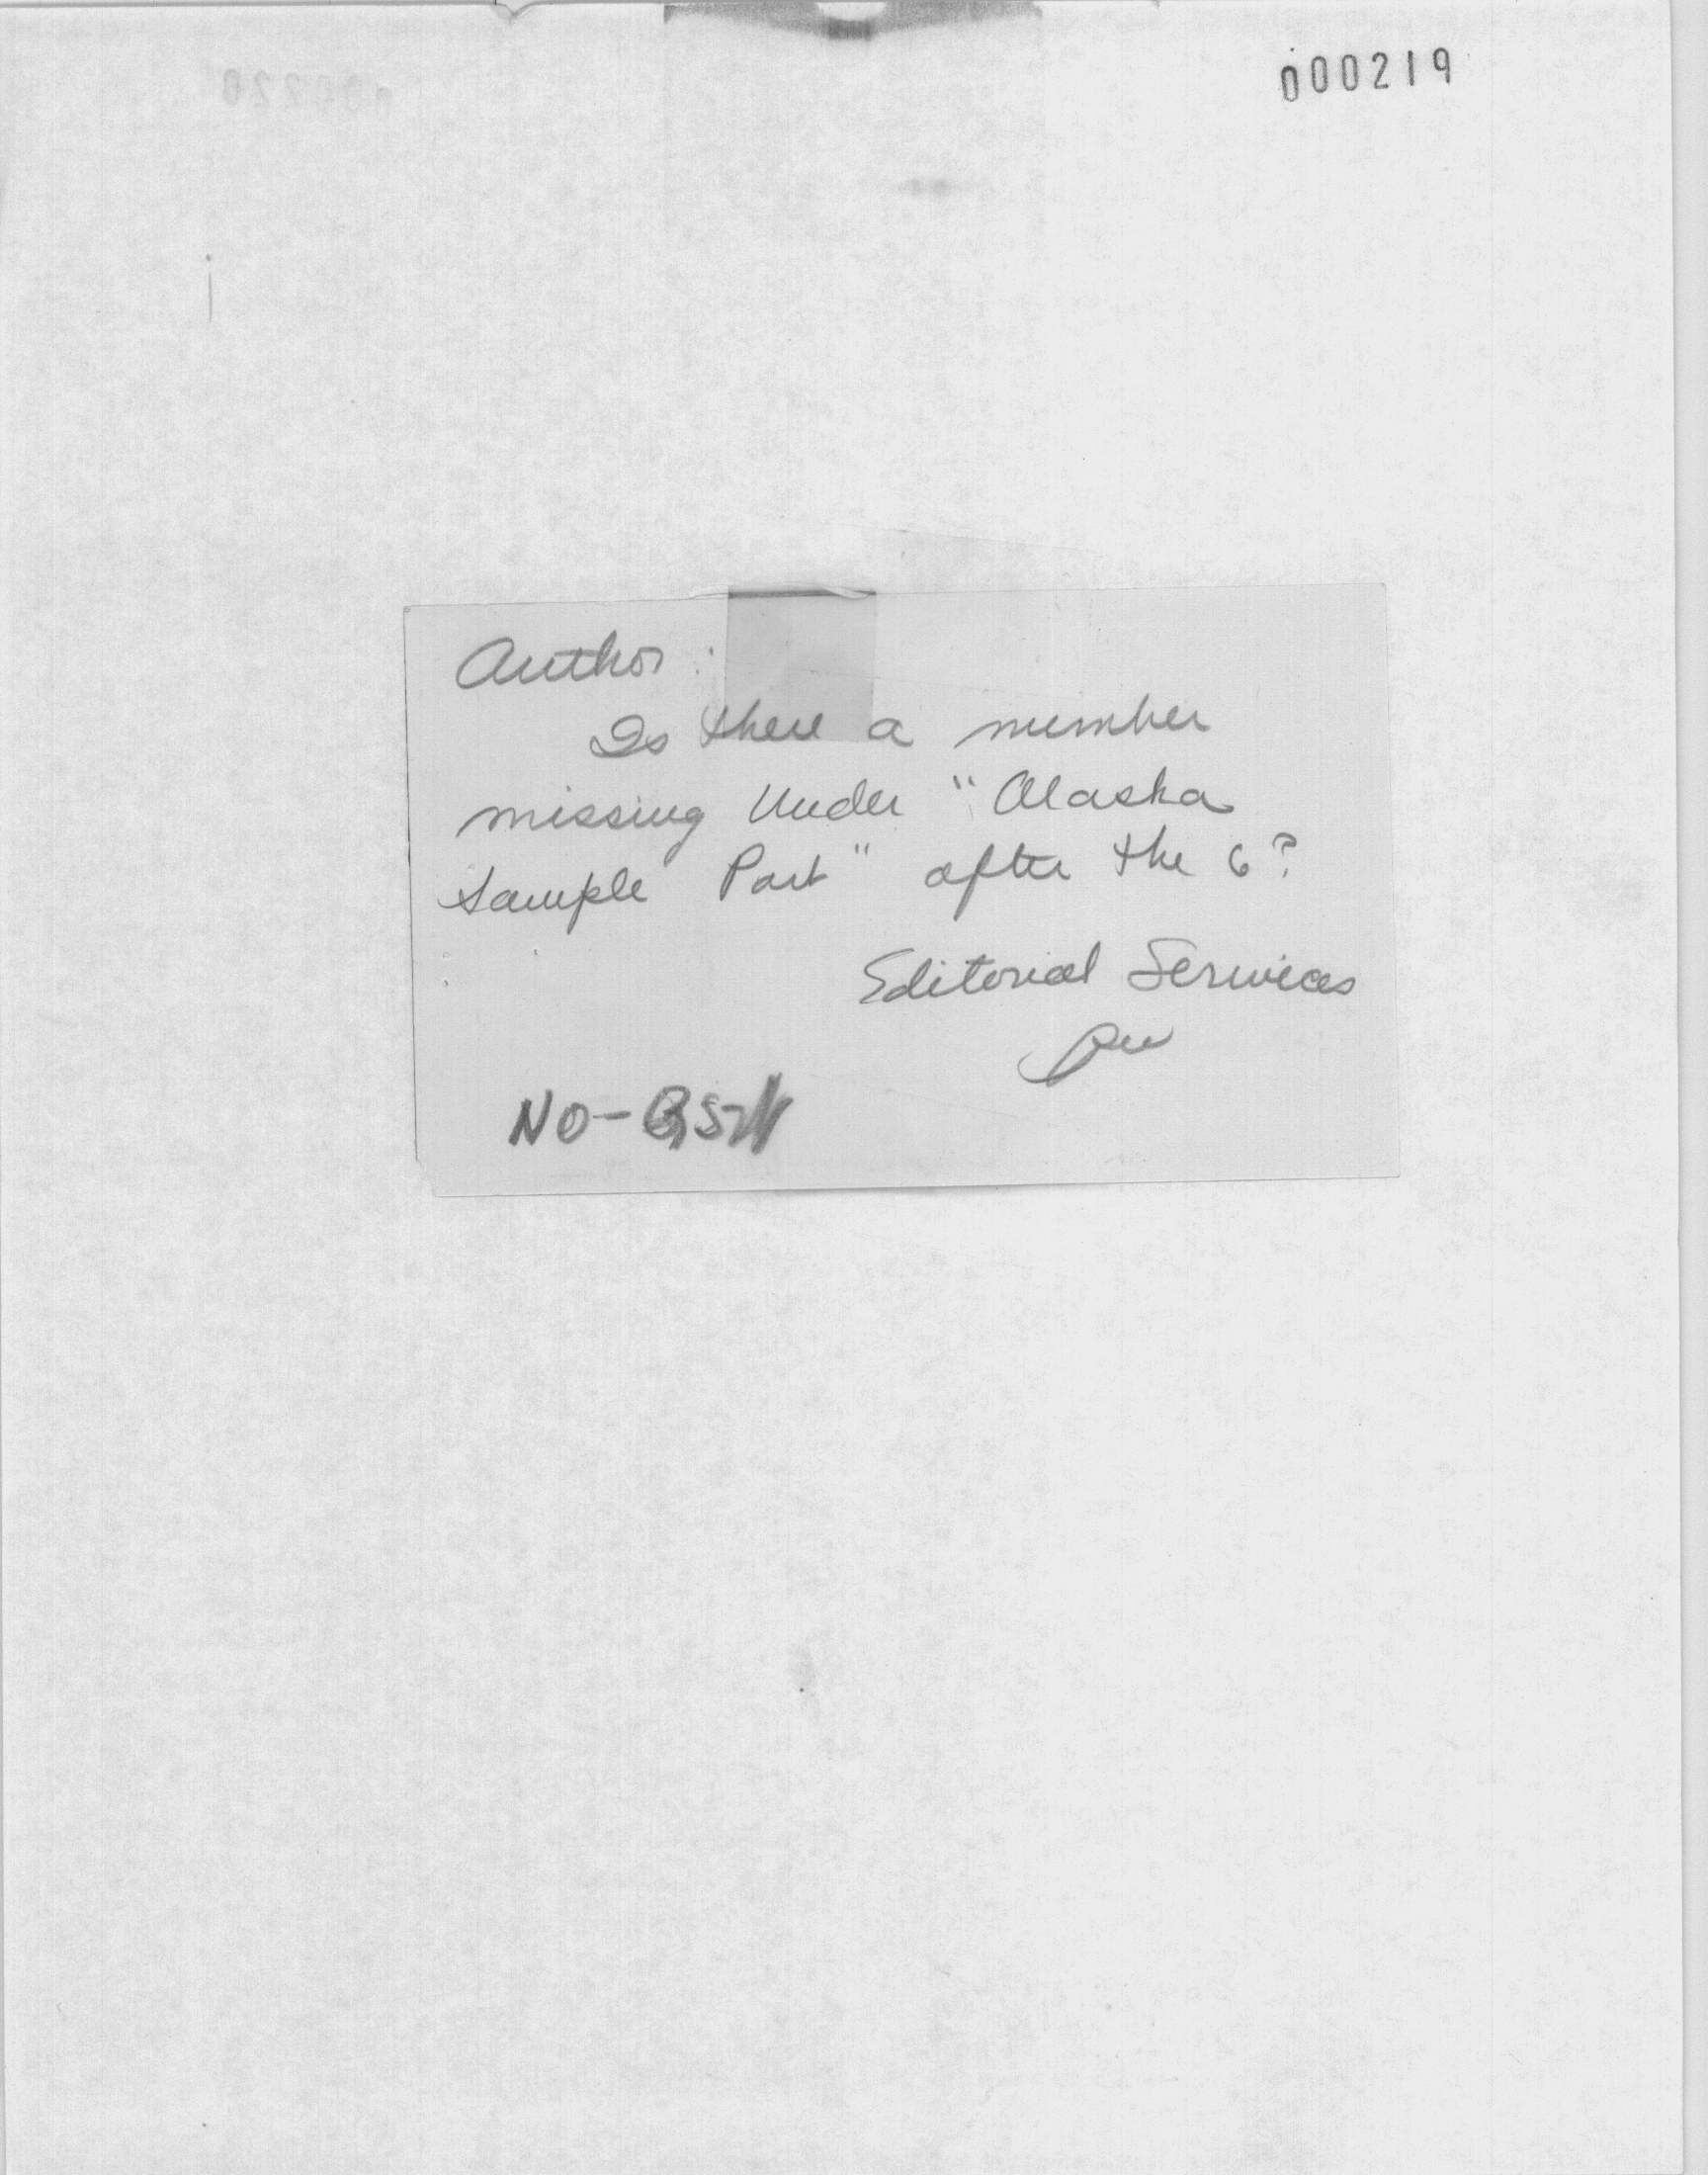 000219
Author:
Is there a number
missing Under "Alaska
Sample Part" after the 6?
Editorial Services
NO-